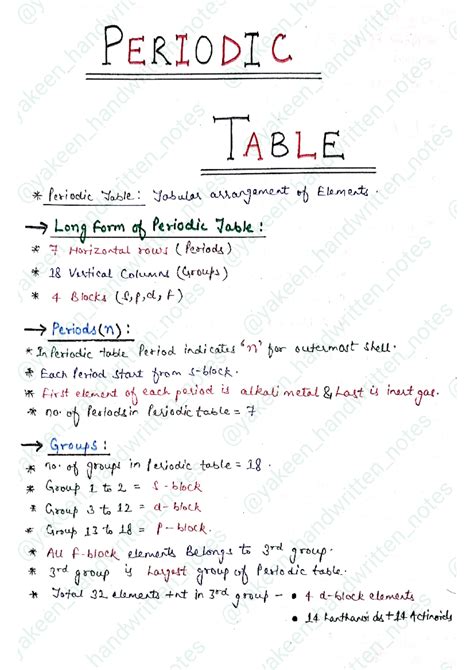 PERIODIC
TABLE
* Periodic Table: Tabular arrangement of Elements.
→ Long Form of Periodic Table:
* 7 Horizontal rows (Periods)
* 18 Vertical Columns (Groups)
* 4 Blocks (s, p, d, f)
→ Periods(n):
* In Periodic table Period indicates 'n' for outermost shell.
* Each Period start from s-block.
* First element of each period is alkali metal & Last is inert gas.
* no. of Periods in Periodic table = 7
→ Groups:
* no. of groups in Periodic table = 18.
* Group 1 to 2 = s-block
* Group 3 to 12 = d-block
* Group 13 to 18 = p-block.
* All f-block elements Belongs to 3rd group.
* 3rd group is Largest group of Periodic table.
* Total 32 elements +nt in 3rd group - • 4 d-block elements
• 14 Lanthanoids + 14 Actinoids
@yakeen_handwritten_notes